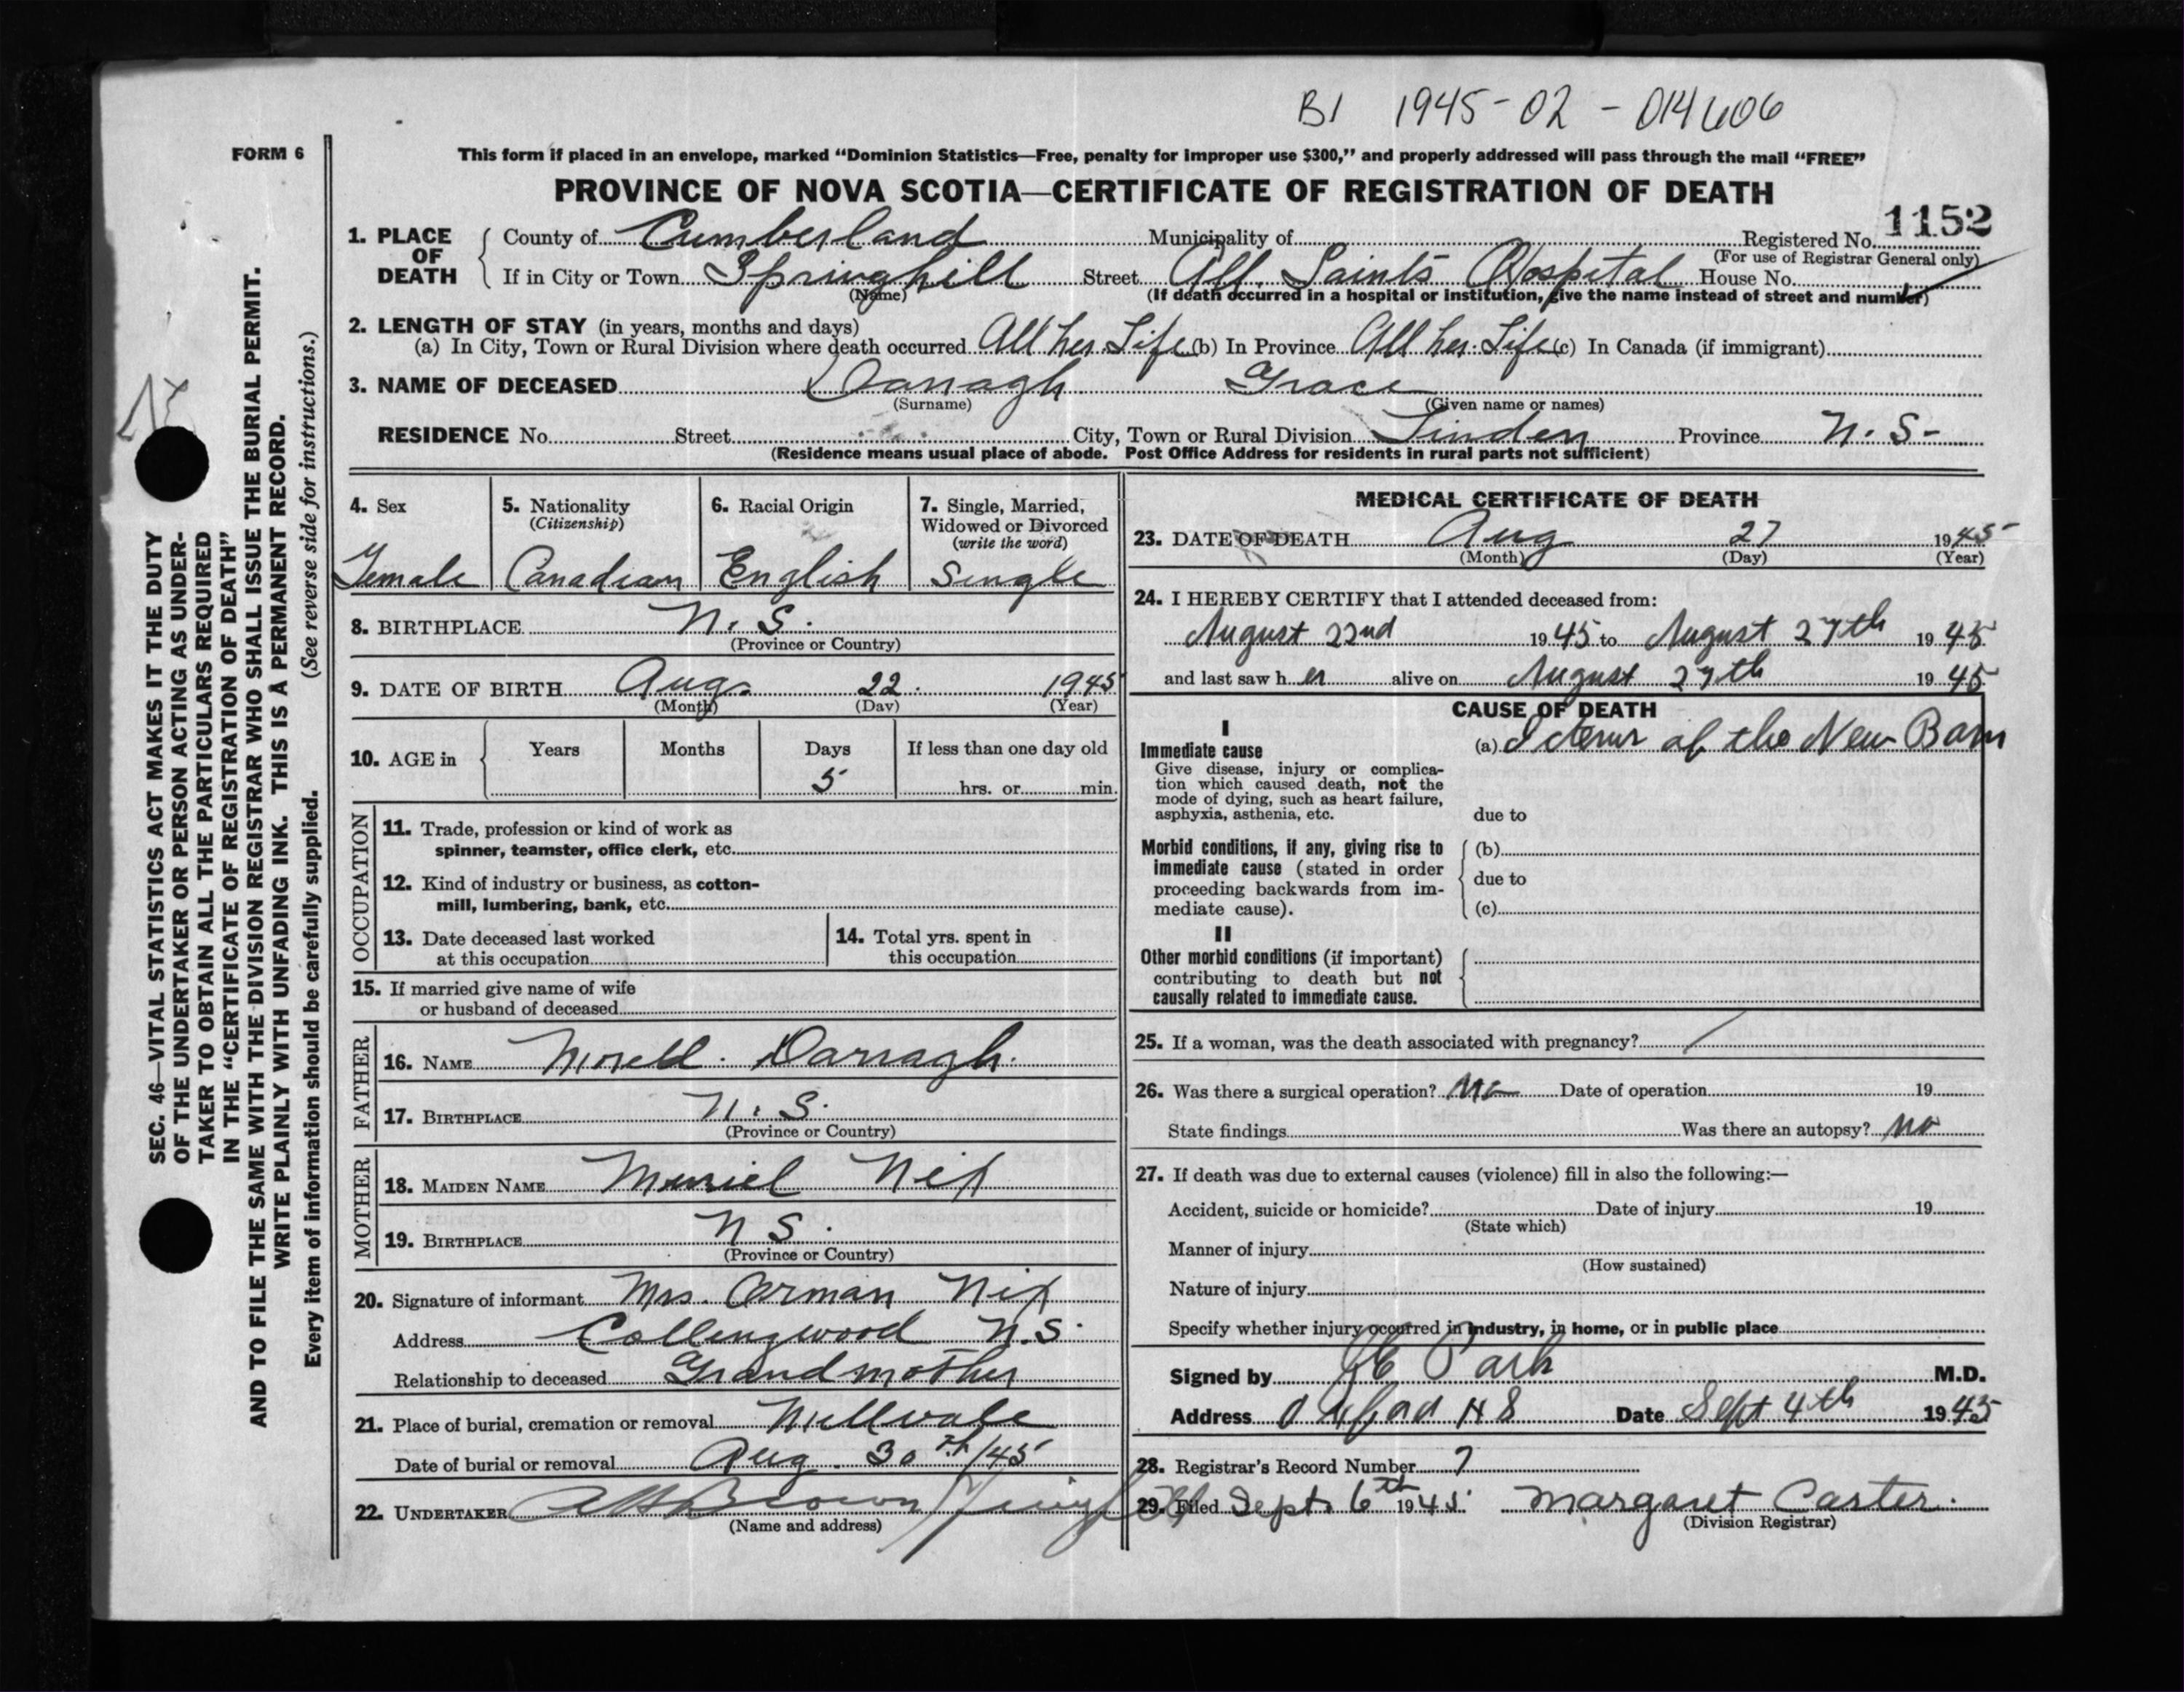 B1 1945-02-014606
FORM 6
This form if placed in an envelope, marked “Dominion Statistics—Free, penalty for improper use $300,” and properly addressed will pass through the mail “FREE”
PROVINCE OF NOVA SCOTIA—CERTIFICATE OF REGISTRATION OF DEATH
1152
1. PLACE OF DEATH
County of Cumberland Municipality of Registered No.
(For use of Registrar General only)
If in City or Town Springhill Street All Saints Hospital House No.
(Name) (If death occurred in a hospital or institution, give the name instead of street and number)
2. LENGTH OF STAY (in years, months and days)
(a) In City, Town or Rural Division where death occurred All her Life (b) In Province All her Life (c) In Canada (if immigrant)
3. NAME OF DECEASED Darragh Grace
(Surname) (Given name or names)
RESIDENCE No. Street City, Town or Rural Division Linden Province N. S-
(Residence means usual place of abode. Post Office Address for residents in rural parts not sufficient)
4. Sex
Female
5. Nationality
(Citizenship)
Canadian
6. Racial Origin
English
7. Single, Married,
Widowed or Divorced
(write the word)
Single
8. BIRTHPLACE N. S.
(Province or Country)
9. DATE OF BIRTH Aug. 22. 1945
(Month) (Day) (Year)
10. AGE in
Years Months Days If less than one day old
5 hrs. or min.
OCCUPATION
11. Trade, profession or kind of work as
spinner, teamster, office clerk, etc.
12. Kind of industry or business, as cotton-
mill, lumbering, bank, etc.
13. Date deceased last worked
at this occupation
14. Total yrs. spent in
this occupation
15. If married give name of wife
or husband of deceased
FATHER
16. NAME Darragh.
17. BIRTHPLACE N. S.
(Province or Country)
MOTHER
18. MAIDEN NAME Muriel Nix
19. BIRTHPLACE N S.
(Province or Country)
20. Signature of informant Mrs. Orman Nix
Address Collingwood N.S.
Relationship to deceased Grandmother
21. Place of burial, cremation or removal Millvale
Date of burial or removal Aug. 30th/45
22. UNDERTAKER Brown
(Name and address)
MEDICAL CERTIFICATE OF DEATH
23. DATE OF DEATH Aug 27 1945
(Month) (Day) (Year)
24. I HEREBY CERTIFY that I attended deceased from:
August 22nd 1945 to August 27th 1945
and last saw her alive on August 27th 1945
CAUSE OF DEATH
I
Immediate cause
Give disease, injury or complica-
tion which caused death, not the
mode of dying, such as heart failure,
asphyxia, asthenia, etc.
(a) Icterus of the New Born
due to
Morbid conditions, if any, giving rise to
immediate cause (stated in order
proceeding backwards from im-
mediate cause).
(b)
due to
(c)
II
Other morbid conditions (if important)
contributing to death but not
causally related to immediate cause.
25. If a woman, was the death associated with pregnancy? /
26. Was there a surgical operation? No Date of operation 19
State findings Was there an autopsy? No
27. If death was due to external causes (violence) fill in also the following:—
Accident, suicide or homicide? Date of injury 19
(State which)
Manner of injury
(How sustained)
Nature of injury
Specify whether injury occurred in industry, in home, or in public place
Signed by Park M.D.
Address Oxford NS Date Sept 4th 1945
28. Registrar's Record Number 7
29. Filed Sept. 6th 1945. Margaret Carter.
(Division Registrar)
SEC. 46—VITAL STATISTICS ACT MAKES IT THE DUTY
OF THE UNDERTAKER OR PERSON ACTING AS UNDER-
TAKER TO OBTAIN ALL THE PARTICULARS REQUIRED
IN THE “CERTIFICATE OF REGISTRATION OF DEATH”
AND TO FILE THE SAME WITH THE DIVISION REGISTRAR WHO SHALL ISSUE THE BURIAL PERMIT.
WRITE PLAINLY WITH UNFADING INK. THIS IS A PERMANENT RECORD.
Every item of information should be carefully supplied. (See reverse side for instructions.)